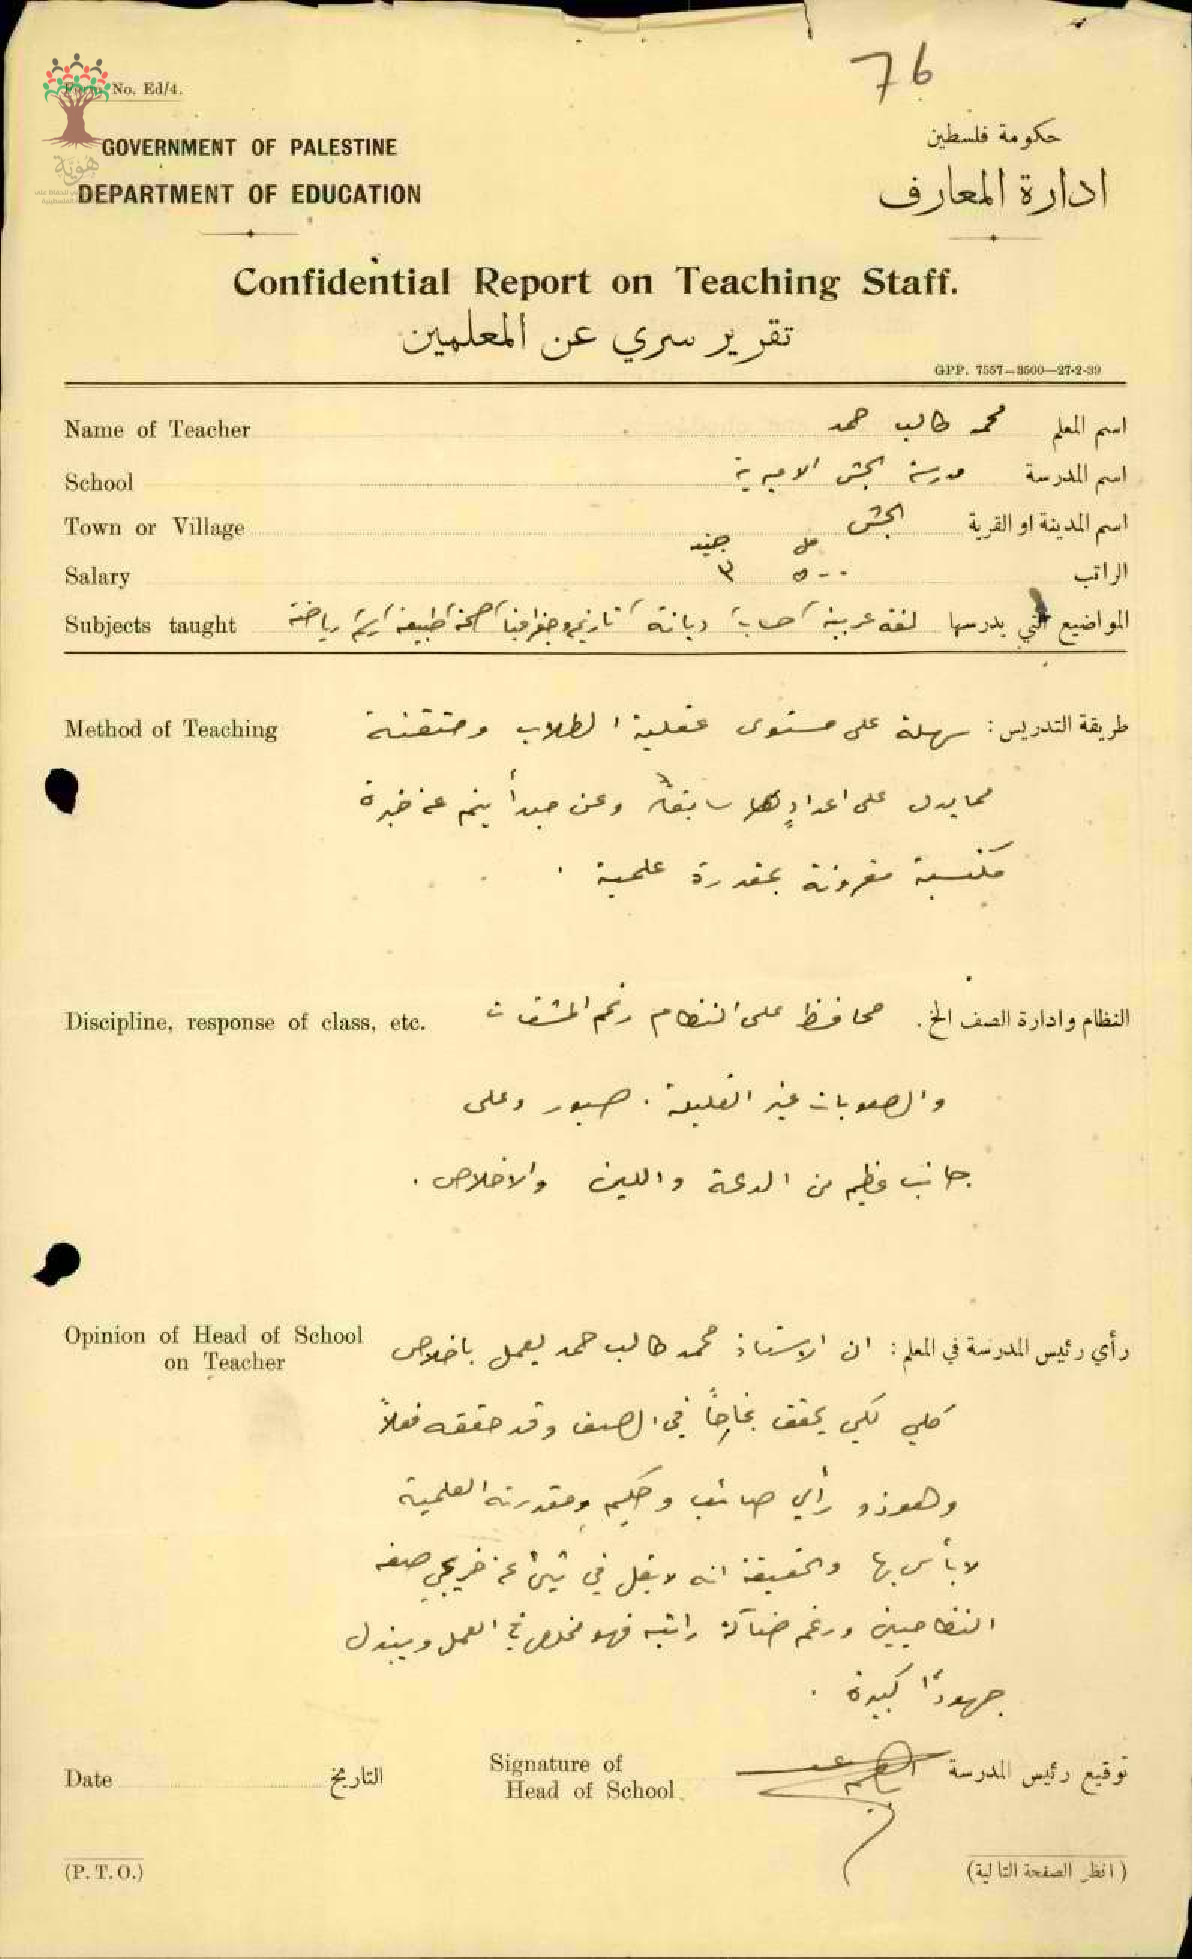 76
Form No. Ed/4.
GOVERNMENT OF PALESTINE
DEPARTMENT OF EDUCATION
حكومة فلسطين
ادارة المعارف
هوية
Confidential Report on Teaching Staff.
تقرير سري عن المعلمين
GPP. 7557—3500—27-2-39
Name of Teacher محمد طالب حمد اسم المعلم
School مدرسة الجش الاميرية اسم المدرسة
Town or Village الجش اسم المدينة او القرية
جنيه مل
Salary ٣ ٥٠٠ الراتب
Subjects taught المواضيع التي يدرسها لغة عربية حساب ديانة تاريخ وجغرافيا صحة طبيعة رسم رياضة
Method of Teaching طريقة التدريس: سهلة على مستوى عقلية الطلاب ومتقنة
مما يدل على اعدادها سابقا وعن مبدأ ينم عن خبرة
مكتسبة مقرونة بمقدرة علمية .
Discipline, response of class, etc. النظام وادارة الصف الخ. محافظ على النظام رغم المشقات
والصعوبات غير القليلة . صبور وعلى
جانب عظيم من الدعة واللين والاخلاص .
Opinion of Head of School رأي رئيس المدرسة في المعلم: ان الاستاذ محمد طالب حمد يعمل باخلاص
on Teacher
كلي لكي يحقق نجاحاً في الصف وقد حققه فعلاً
وهو ذو رأي صائب وحكيم ومقدرته العلمية
لا بأس بها والحقيقة انه لا يقل في شيء عن خريجي صفه
النظاميين ورغم ضآلة راتبه فهو مخلص في العمل ويبذل
جهودًا كبيرة .
Date التاريخ Signature of توقيع رئيس المدرسة
Head of School
(P. T. O.) (انظر الصفحة التالية)